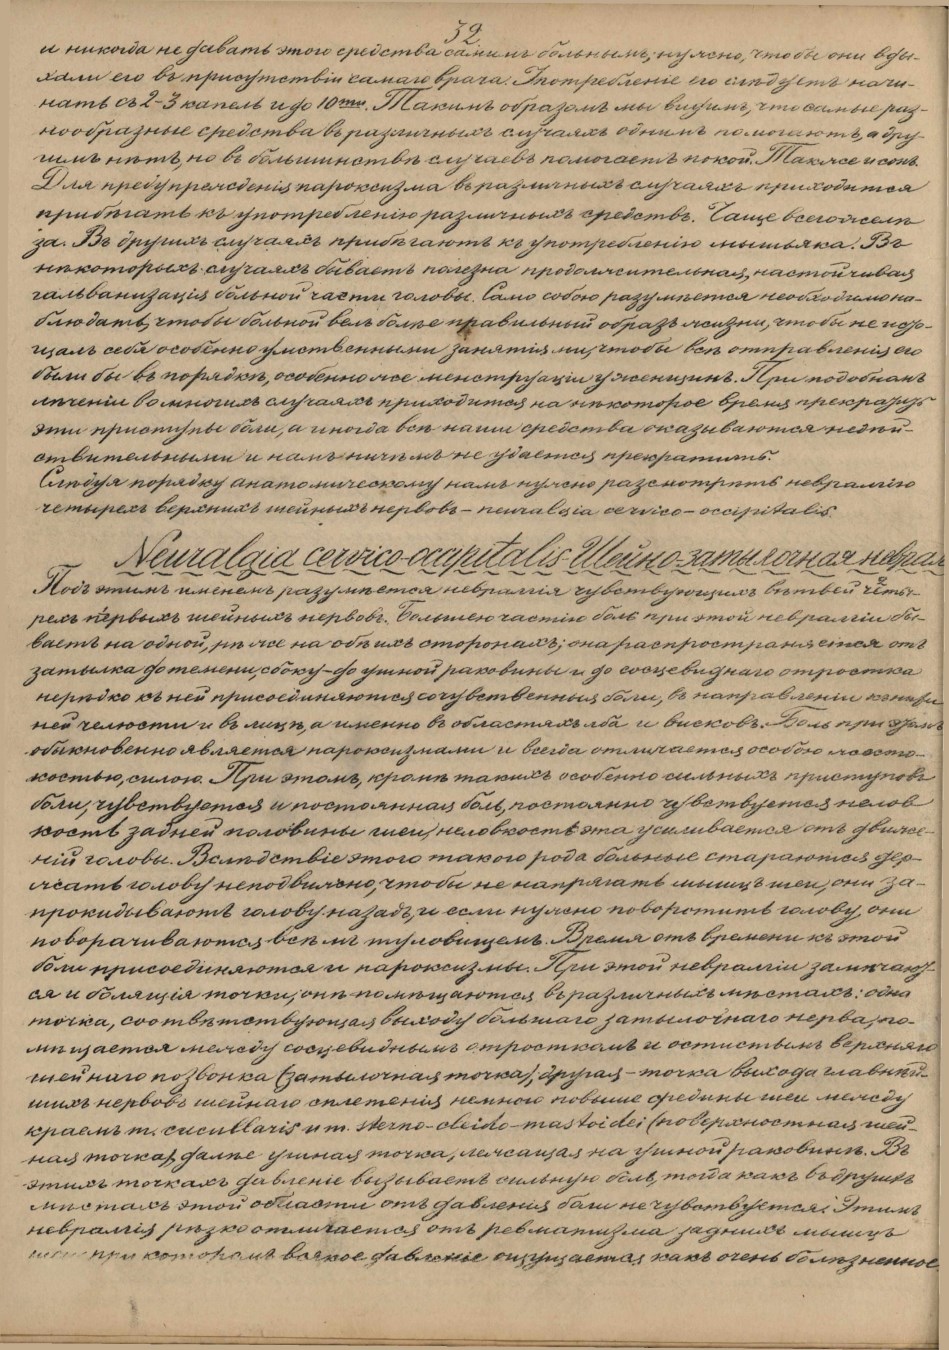 32
и никогда не давать этого средства самимъ больнымъ; нужно, чтобы они вды-
хали его въ присутствіи самаго врача. Употребленіе его слѣдуетъ начи-
нать съ 2-3 капель и до 10ти. Такимъ образомъ мы видимъ, что самые раз-
нообразные средства въ различныхъ случаяхъ однимъ помогаютъ, а дру-
гимъ нѣтъ, но въ большинствѣ случаевъ помогаетъ покой. Также и сонъ.
Для предупрежденія пароксизма въ различныхъ случаяхъ приходится
прибѣгать къ употребленію различныхъ средствъ. Чаще всего желѣ-
за. Въ другихъ случаяхъ прибѣгаютъ къ употребленію мышьяка. Въ
нѣкоторыхъ случаяхъ бываетъ полезна продолжительная, настойчивая
гальванизація больной части головы. Само собою разумѣется необходимо на-
блюдать, чтобы больной велъ болѣе правильный образъ жизни, чтобы не исто-
щалъ себя особенно умственными занятіями, чтобы всѣ отправленія его
были бы въ порядкѣ, особенно же менструаціи у женщинъ. При подобномъ
лѣченіи во многихъ случаяхъ приходится на нѣкоторое время прекратить
эти приступы боли, а иногда всѣ наши средства оказываются недѣй-
ствительными и намъ ничѣмъ не удается прекратить.
Слѣдуя порядку анатомическому намъ нужно разсмотрѣть невралгію
четырехъ верхнихъ шейныхъ нервовъ - neuralgia cervico-occipitalis.
Neuralgia cervico-occipitalis. Шейно-затылочная неврал
Подъ этимъ именемъ разумѣется невралгія чувствующихъ вѣтвей четы-
рехъ первыхъ шейныхъ нервовъ. Большею частію боль при этой невралгіи бы-
ваетъ на одной, рѣже на обѣихъ сторонахъ; она распространяется отъ
затылка до темени, сбоку - до ушной раковины и до сосцевиднаго отростка
нерѣдко къ ней присоединяются сочувственныя боли, въ направленіи къ
ней челюсти и въ лицѣ, а именно въ областяхъ лба и висковъ. Боль при этомъ
обыкновенно является пароксизмами и всегда отличается особою жесто-
костью, силою. При этомъ, кромѣ такихъ особенно сильныхъ приступовъ
боли, чувствуется и постоянная боль, постоянно чувствуется нелов
кость задней половины шеи, неловкость эта усиливается отъ движе-
ній головы. Вслѣдствіе этого такого рода больные стараются дер-
жать голову неподвижно, чтобы не напрягать мышцъ шеи, они за-
прокидываютъ голову назадъ, и если нужно поворотить голову, они
поворачиваются всѣмъ туловищемъ. Время отъ времени къ этой
боли присоединяются и пароксизмы. При этой невралгіи замѣчают-
ся и болящія точки; онѣ помѣщаются въ различныхъ мѣстахъ: одна
точка, соотвѣтствующая выходу большаго затылочнаго нерва, по-
мѣщается между сосцевиднымъ отросткомъ и остистымъ верхняго
шейнаго позвонка (затылочная точка), другая - точка выхода главнѣй-
шихъ нервовъ шейнаго сплетенія немного повыше средины шеи между
краемъ m. cucullaris и m. sterno-cleido-mastoidei (поверхностная шей-
ная точка), далѣе ушная точка, лежащая на ушной раковинѣ. Въ
этихъ точкахъ давленіе вызываетъ сильную боль, тогда какъ въ другихъ
мѣстахъ этой области отъ давленія боли не чувствуется. Этимъ
невралгія рѣзко отличается отъ ревматизма заднихъ мышцъ
шеи при которомъ всякое давленіе ощущается какъ очень болѣзненное